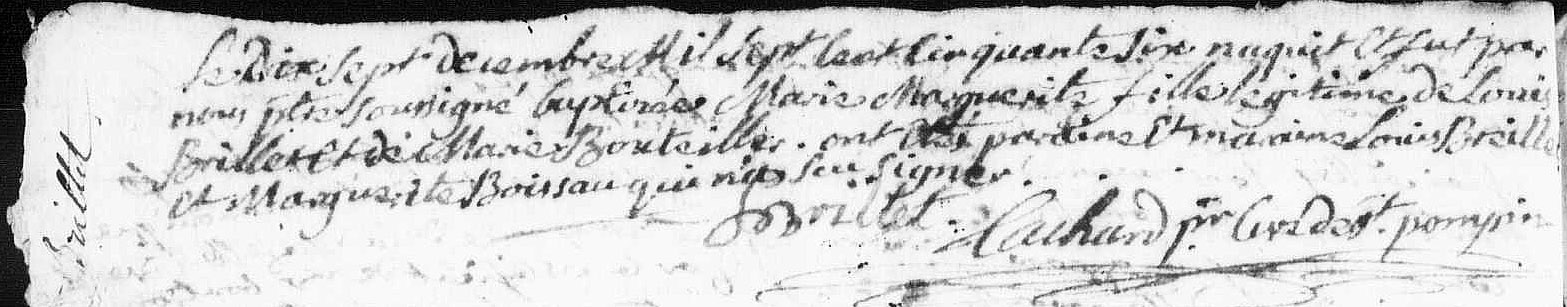 Le Dix Sept decembre Mil Sept Cent Cinquante Six naquit Et fut par
nous ptre soussigné baptisée Marie Marguerite fille legitime de Louis
Brillet Et de Marie Bouteiller. ont été paraine Et maraine Louis Breille
et Marguerite Boissau qui n'a sçu Signer.
Brillet Cachard ptr Curé de St. pompin
Brillet